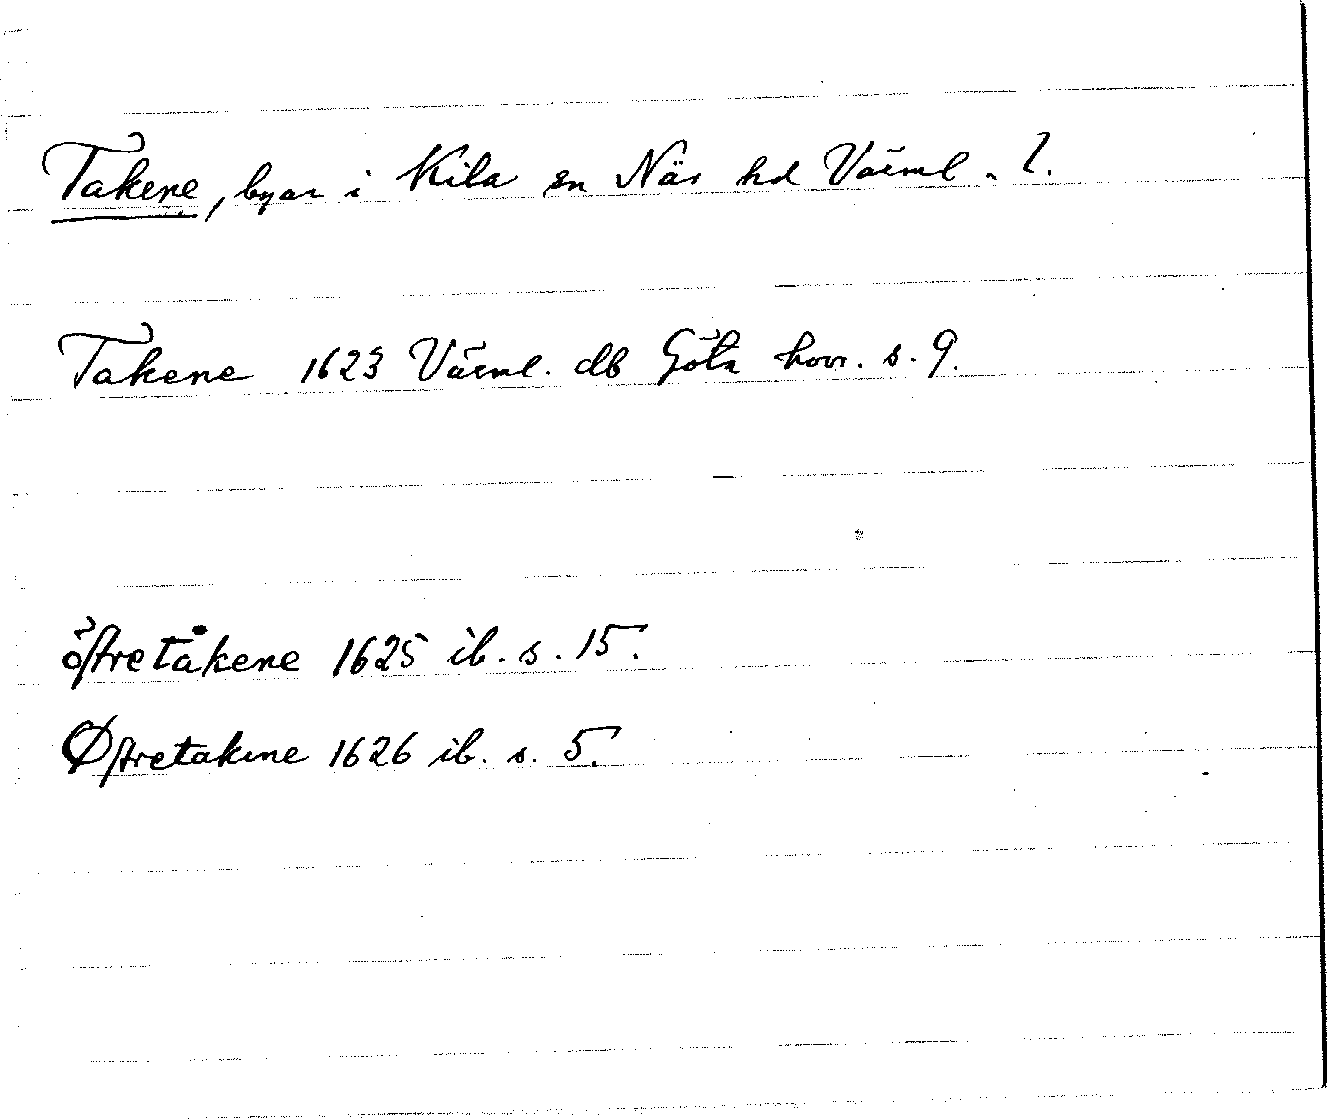 Takene, byar i Kila sn Näs hd Värml. l.
Takene 1623 Värml. db Göta hovr. s. 9.
öftretåkene 1625 ib. s. 15.
Øftretakene 1626 ib. s. 5.